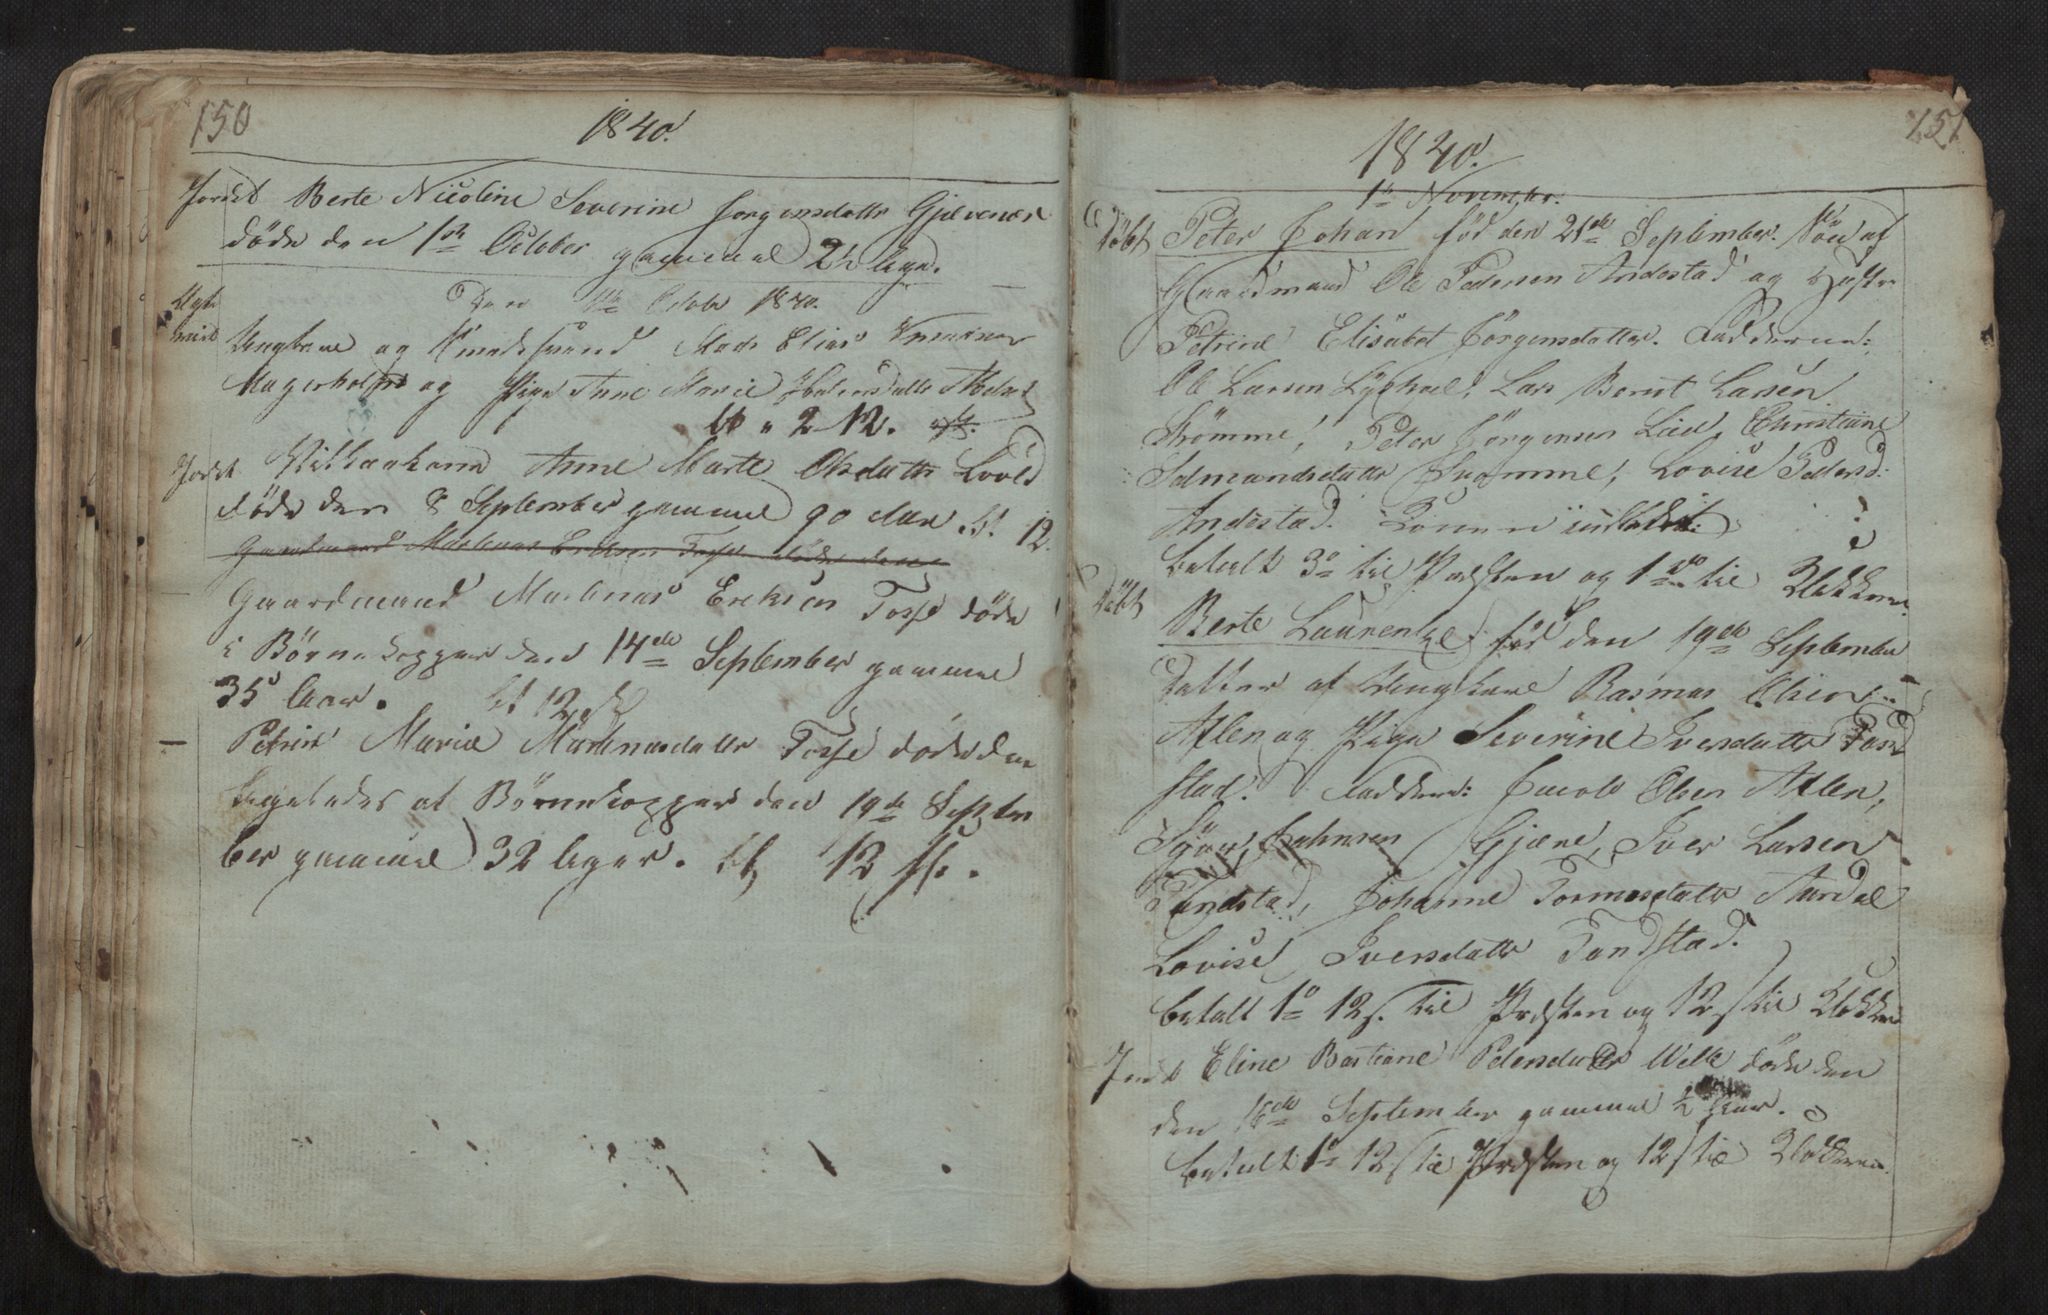 150
1840.
Jordet Berte Nicoline Severine Jørgensdatter Gjævenæs
døde den 1ste October gammel 2½ Uge.
Den October 1840.
Ungkarl og Mads Elias
Magerholm og Pige Anne Marie
bt " 2-12.
Jordet Anne Marte Olsdatter
døde den 8 September gammel 90 Aar. bt. 12.
Gaardmand Martinus Eriksen Tosse døde den
Gaardmand Martinus Eriksen Tosse døde
i Børnekopper den 14de September gammel
35 Aar. bt 12 s
Petrine Marie Martinusdatter Tosse døde den
ligeledes af Børnekopper den 19de Septem
ber gammel 32 Uger. bt, 12 sk.
151
1840.
1te November.
Døbt Peter Johan fød den 21de September. Søn af
Gaardmand Ole Pedersen Andestad og Hustru
Petrine Elisabet Jørgensdatter. Fadderne:
Ole Larsen Lars Berent Larsen
Strømme, Peter Jørgensen Christiane
Strømme, Lovise Pedersd:
Andestad. Konen
betalt 3o til Præsten og 1 do til Klokkeren.
Døbt
Berte Laurentze fød den 19de September
Datter af Ungkarl Rasmus Olsen
Aflen og Pige Severine Iversdatter Tand
stad. Fadderne: Jacob Olsen Aflen,
Johnsen Gjære, Iver Larsen
Tandstad, Johanne Tormosdatter Aurdal
Lovise Iversdatter Tandstad.
betalt 1o 12 s. til Præsten og 12 s til Klokkeren
Jordet Eline Bastiane Pedersdatter Welle døde den
den 16de September gammel ½ Aar.
betalt 1o 12 s til Præsten og 12 s til Klokkeren.